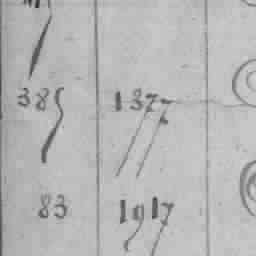 385 1377
83 1917